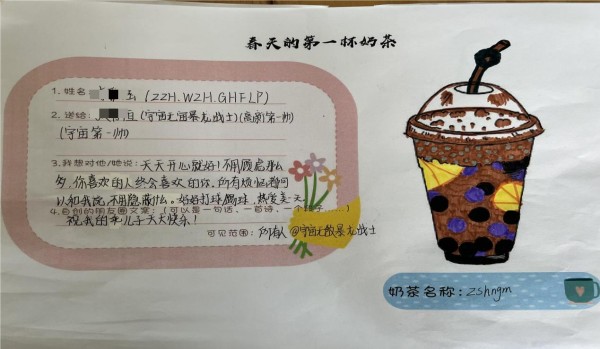 春天的第一杯奶茶
1. 姓名 玉 (ZZH.WZH.GHFLP)
2. 送给: 直 (宇宙无敌暴龙战士) (高新第一帅)
(宇宙第一帅)
3. 我想对他/她说: 天天开心就好! 不用顾虑那么
多, 你喜欢的人终会喜欢的你, 所有烦恼都可
以和我说, 不用隐藏什么。好好打球踢球, 热爱每一天
4. 自创的朋友圈文案: (可以是一句话、一首诗、一个段子……)
祝我的乖儿子天天快乐!
可见范围: 所有人@宇宙无敌暴龙战士
奶茶名称: zshngm